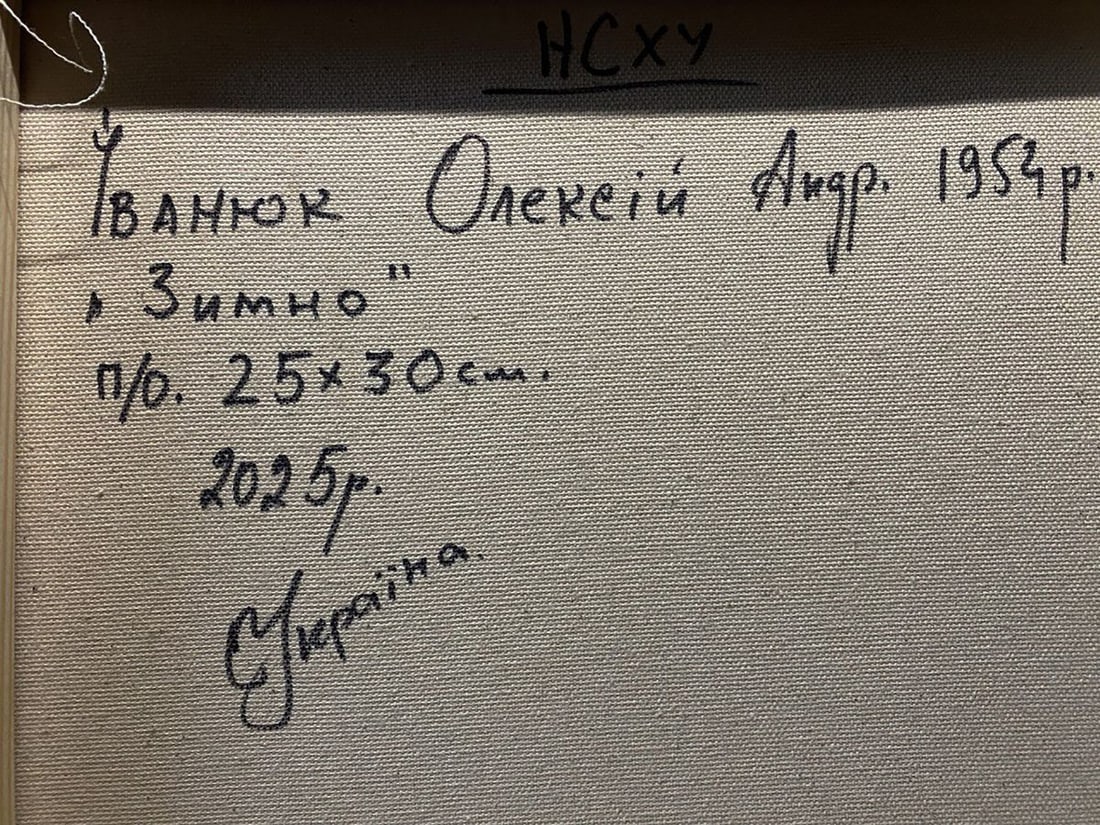 НСХУ
Іванюк Олексій Андр. 1954р.
„Зимно"
п/о. 25х30см.
2025р.
Україна.